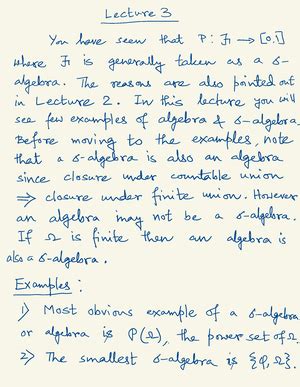 Lecture 3
You have seen that P: ℱ → [0,1]
where ℱ is generally taken as a σ-
algebra. The reasons are also pointed out
in Lecture 2. In this lecture you will
see few examples of algebra & σ-algebra.
Before moving to the examples, note
that a σ-algebra is also an algebra
since closure under countable union
⇒ closure under finite union. However
an algebra may not be a σ-algebra.
If Ω is finite then an algebra is
also a σ-algebra.
Examples:
1) Most obvious example of a σ-algebra
or algebra is P(Ω), the power set of Ω.
2) The smallest σ-algebra is {φ, Ω}.